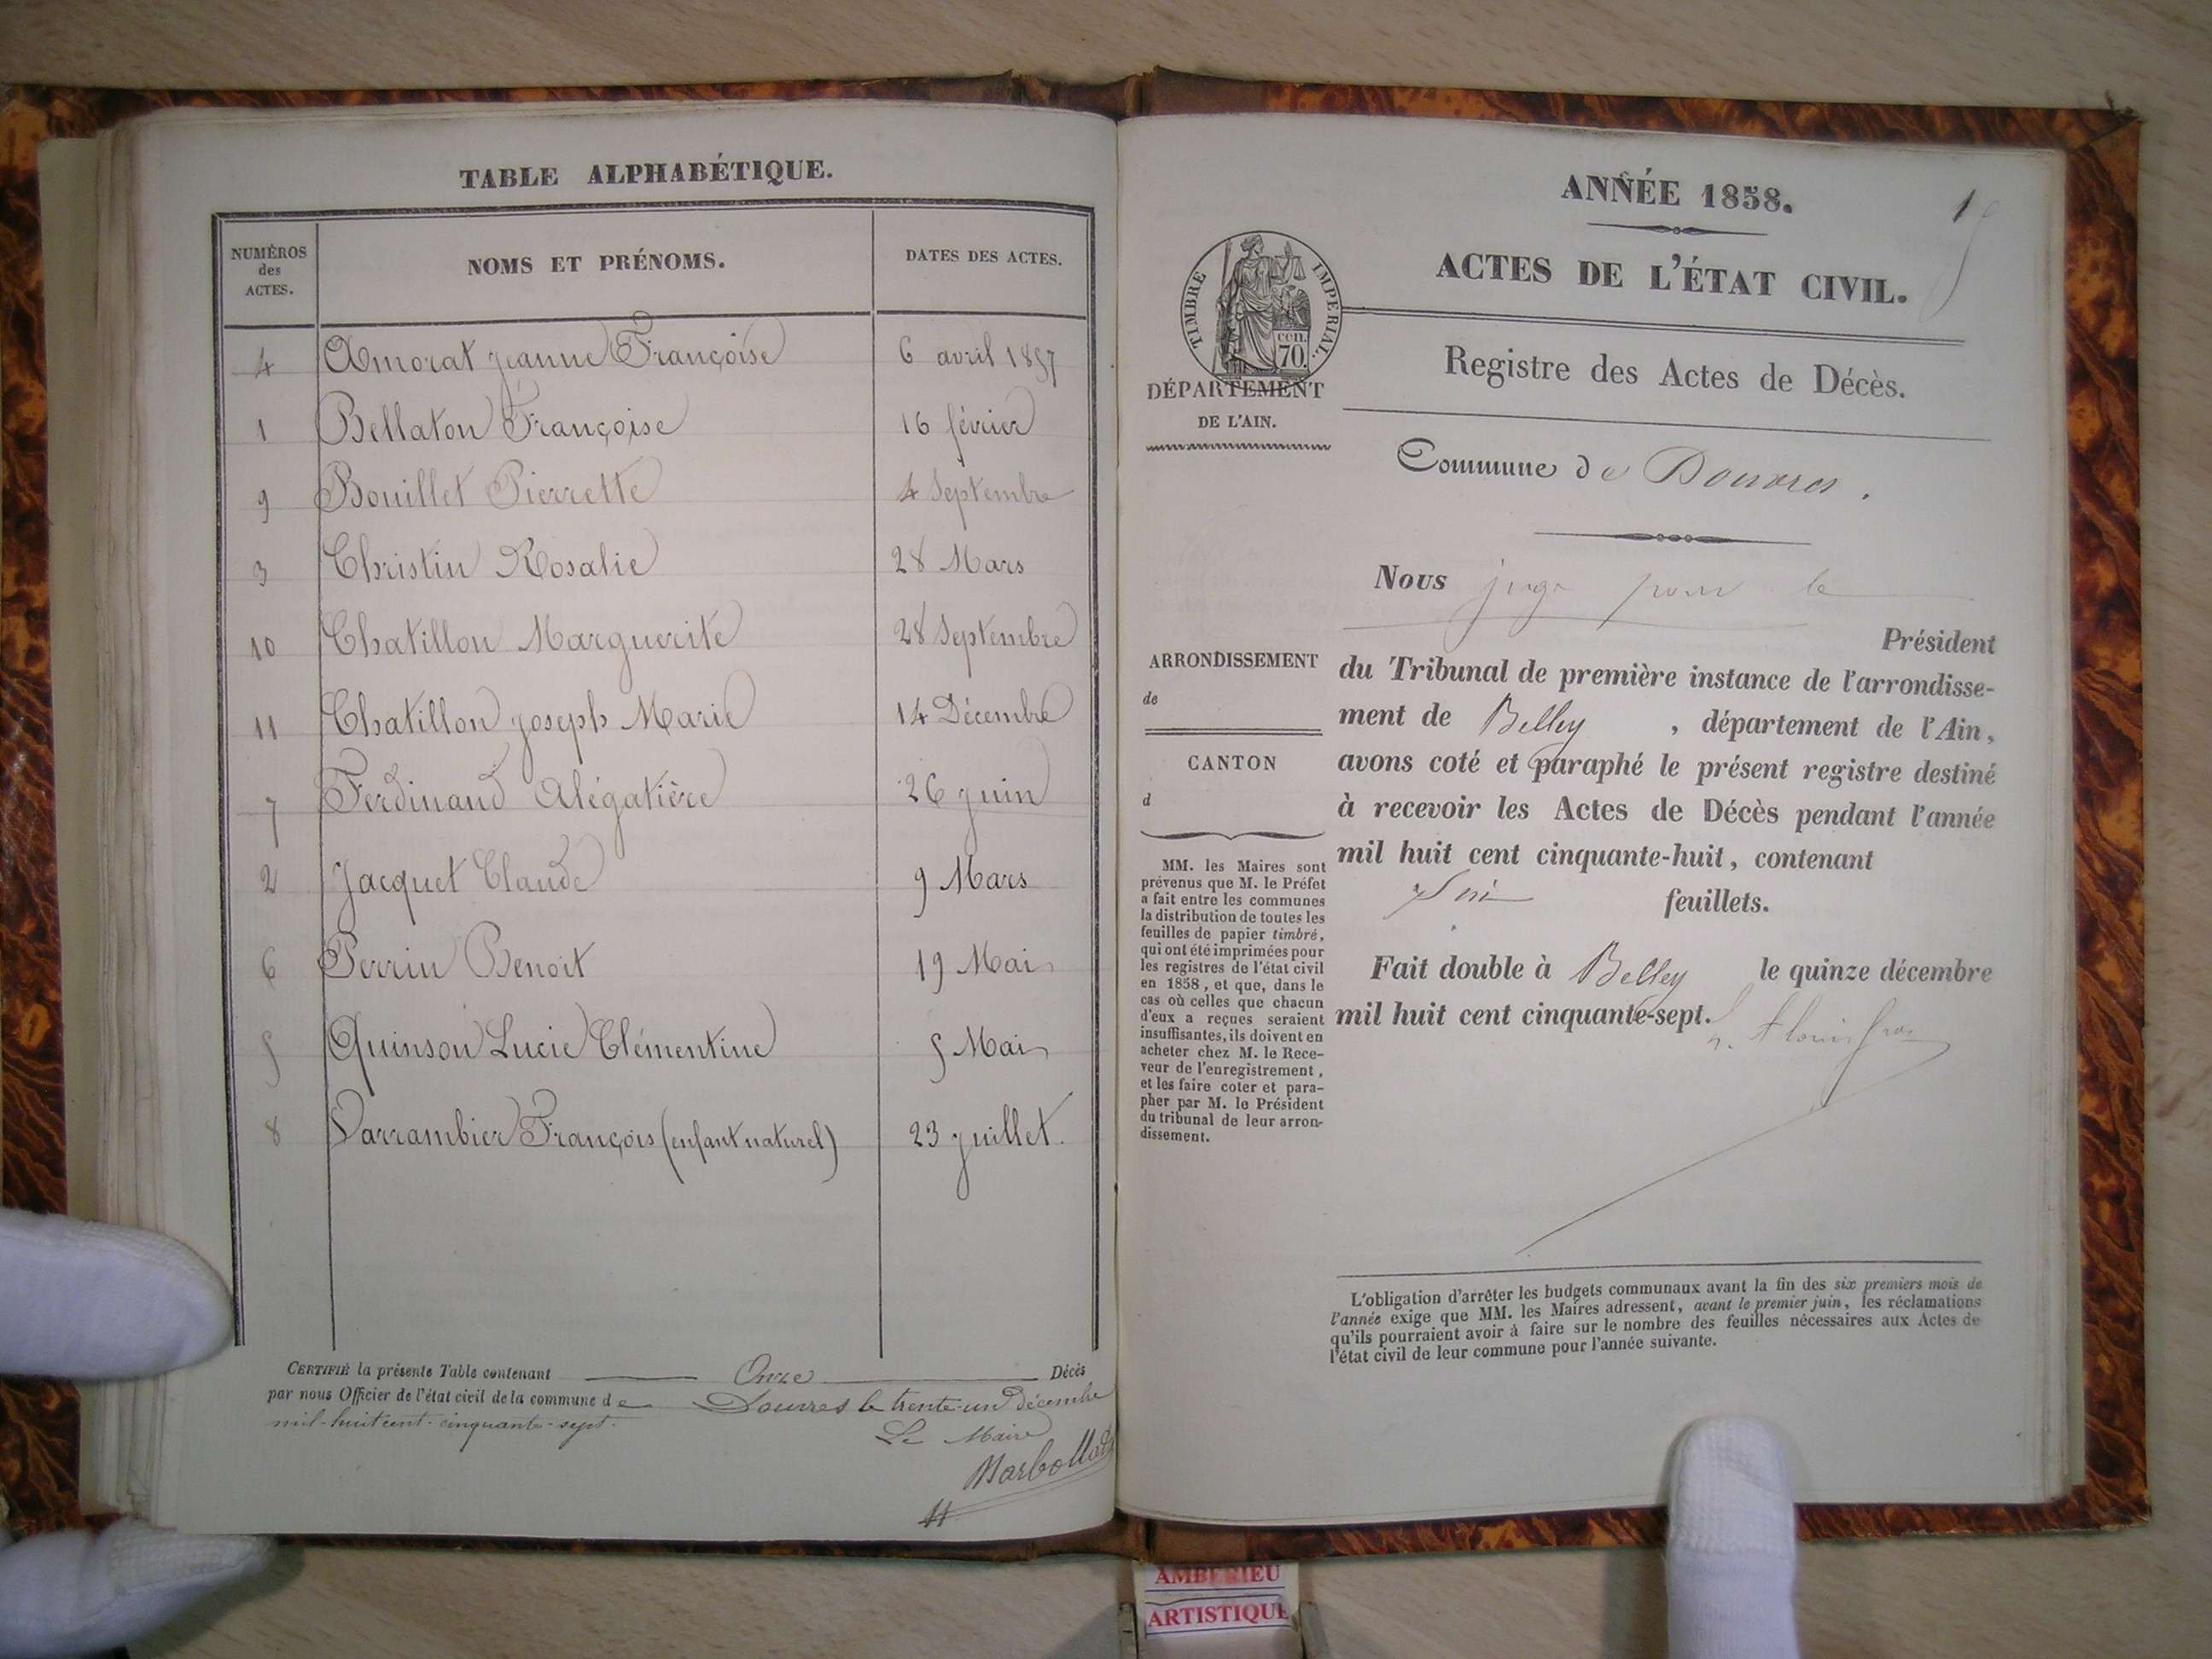 TABLE ALPHABÉTIQUE.
NUMÉROS des ACTES. NOMS ET PRÉNOMS. DATES DES ACTES.
4 Amorat Jeanne Françoise 6 avril 1857
1 Bellaton Françoise 16 février
9 Bouillet Pierrette 4 Septembre
3 Christin Rosalie 28 Mars
10 Chatillon Marguerite 28 Septembre
11 Chatillon Joseph Marie 14 Décembre
7 Ferdinand Alégatière 26 juin
2 Jacquet Claude 9 Mars
6 Perrin Benoit 19 Mai
5 Quinson Lucie Clémentine 5 Mai
8 Varrambier François (enfant naturel) 23 juillet.
CERTIFIÉ la présente Table contenant Onze Décès
par nous Officier de l'état civil de la commune de Douvres le trente-un décembre
mil-huit cent-cinquante-sept.
Le Maire
Marbollat
ANNÉE 1858.
1
ACTES DE L'ÉTAT CIVIL.
TIMBRE IMPERIAL.
cen.
70.
Registre des Actes de Décès.
DÉPARTEMENT
DE L'AIN.
Commune de Douvres.
Nous juge pour le
Président
ARRONDISSEMENT
de
CANTON
d
du Tribunal de première instance de l'arrondisse-
ment de Belley, département de l'Ain,
avons coté et paraphé le présent registre destiné
à recevoir les Actes de Décès pendant l'année
mil huit cent cinquante-huit, contenant
feuillets.
Fait double à Belley le quinze décembre
mil huit cent cinquante-sept.
MM. les Maires sont
prévenus que M. le Préfet
a fait entre les communes
la distribution de toutes les
feuilles de papier timbré,
qui ont été imprimées pour
les registres de l'état civil
en 1858, et que, dans le
cas où celles que chacun
d'eux a reçues seraient
insuffisantes, ils doivent en
acheter chez M. le Rece-
veur de l'enregistrement,
et les faire coter et para-
pher par M. le Président
du tribunal de leur arron-
dissement.
L'obligation d'arrêter les budgets communaux avant la fin des six premiers mois de
l'année exige que MM. les Maires adressent, avant le premier juin, les réclamations
qu'ils pourraient avoir à faire sur le nombre des feuilles nécessaires aux Actes de
l'état civil de leur commune pour l'année suivante.
AMBERIEU
ARTISTIQUE